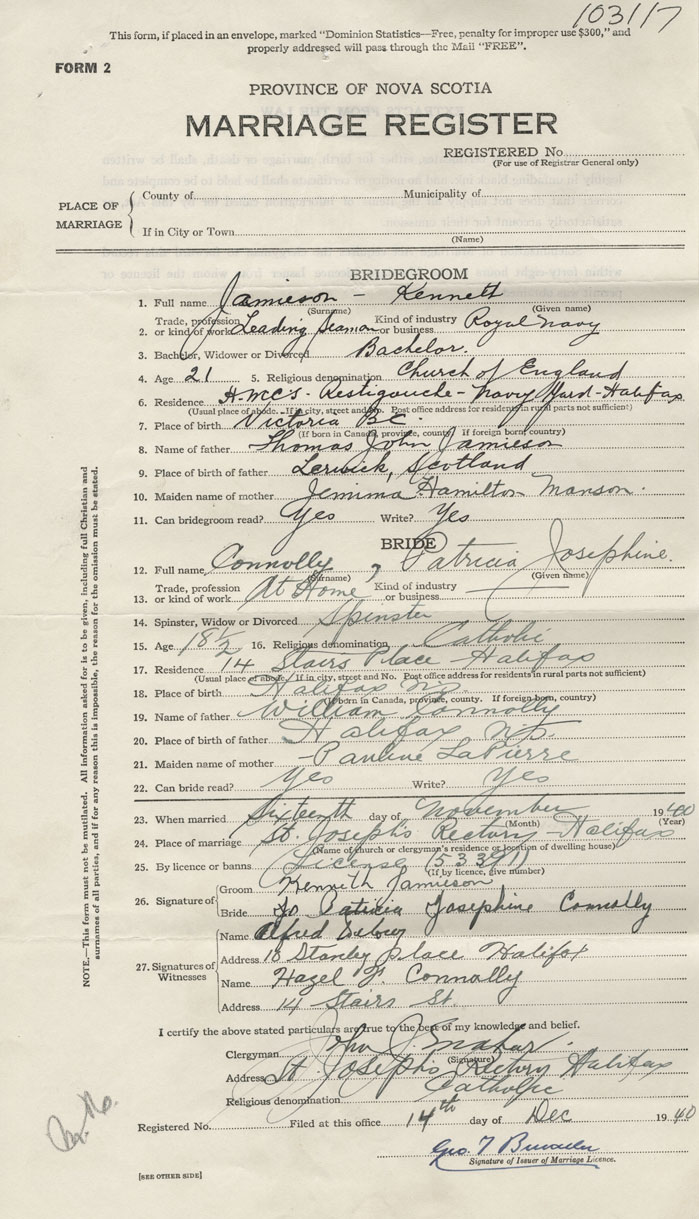 103117
This form, if placed in an envelope, marked "Dominion Statistics—Free, penalty for improper use $300," and
properly addressed will pass through the Mail "FREE".
FORM 2
PROVINCE OF NOVA SCOTIA
MARRIAGE REGISTER
REGISTERED No.
(For use of Registrar General only)
PLACE OF MARRIAGE
County of Municipality of
If in City or Town
(Name)
BRIDEGROOM
1. Full name Jamieson - Kennett
(Surname) (Given name)
2. Trade, profession or kind of work Leading Seaman Kind of industry or business Royal Navy
3. Bachelor, Widower or Divorced Bachelor.
4. Age 21 5. Religious denomination Church of England
6. Residence H.M.C.S. Restigouche - Navy Yard - Halifax
(Usual place of abode. If in city, street and No. Post office address for residents in rural parts not sufficient)
7. Place of birth Victoria BC
(If born in Canada, province, county. If foreign born, country)
8. Name of father Thomas John Jamieson
9. Place of birth of father Lerwick, Scotland
10. Maiden name of mother Jemima Hamilton Manson.
11. Can bridegroom read? Yes Write? Yes
BRIDE
12. Full name Connolly, Patricia Josephine.
(Surname) (Given name)
13. Trade, profession or kind of work At Home Kind of industry or business
14. Spinster, Widow or Divorced Spinster
15. Age 18 1/2 16. Religious denomination Catholic
17. Residence 14 Stairs Place Halifax
(Usual place of abode. If in city, street and No. Post office address for residents in rural parts not sufficient)
18. Place of birth Halifax N.S.
(If born in Canada, province, county. If foreign born, country)
19. Name of father William Connolly
20. Place of birth of father Halifax N.S.
21. Maiden name of mother Pauline LaPierre
22. Can bride read? Yes Write? Yes
23. When married Sixteenth day of November 1940
(Month) (Year)
24. Place of marriage St. Joseph's Rectory - Halifax
(Name of church or clergyman's residence or location of dwelling house)
25. By licence or banns License (53391)
(If by licence, give number)
26. Signature of
Groom Kenneth Jamieson
Bride Patricia Josephine Connolly
27. Signatures of Witnesses
Name Alfred
Address 18 Stanley Place Halifax
Name Hazel F. Connolly
Address 14 Stairs St.
I certify the above stated particulars are true to the best of my knowledge and belief.
Clergyman John J.
(Signature)
Address St. Joseph's Rectory Halifax
Religious denomination Catholic
Registered No. Filed at this office 14th day of Dec 1940
Geo. T
Signature of Issuer of Marriage Licence.
[SEE OTHER SIDE]
NOTE.—This form must not be mutilated. All information asked for is to be given, including full Christian and
surnames of all parties, and if for any reason this is impossible, the reason for the omission must be stated.